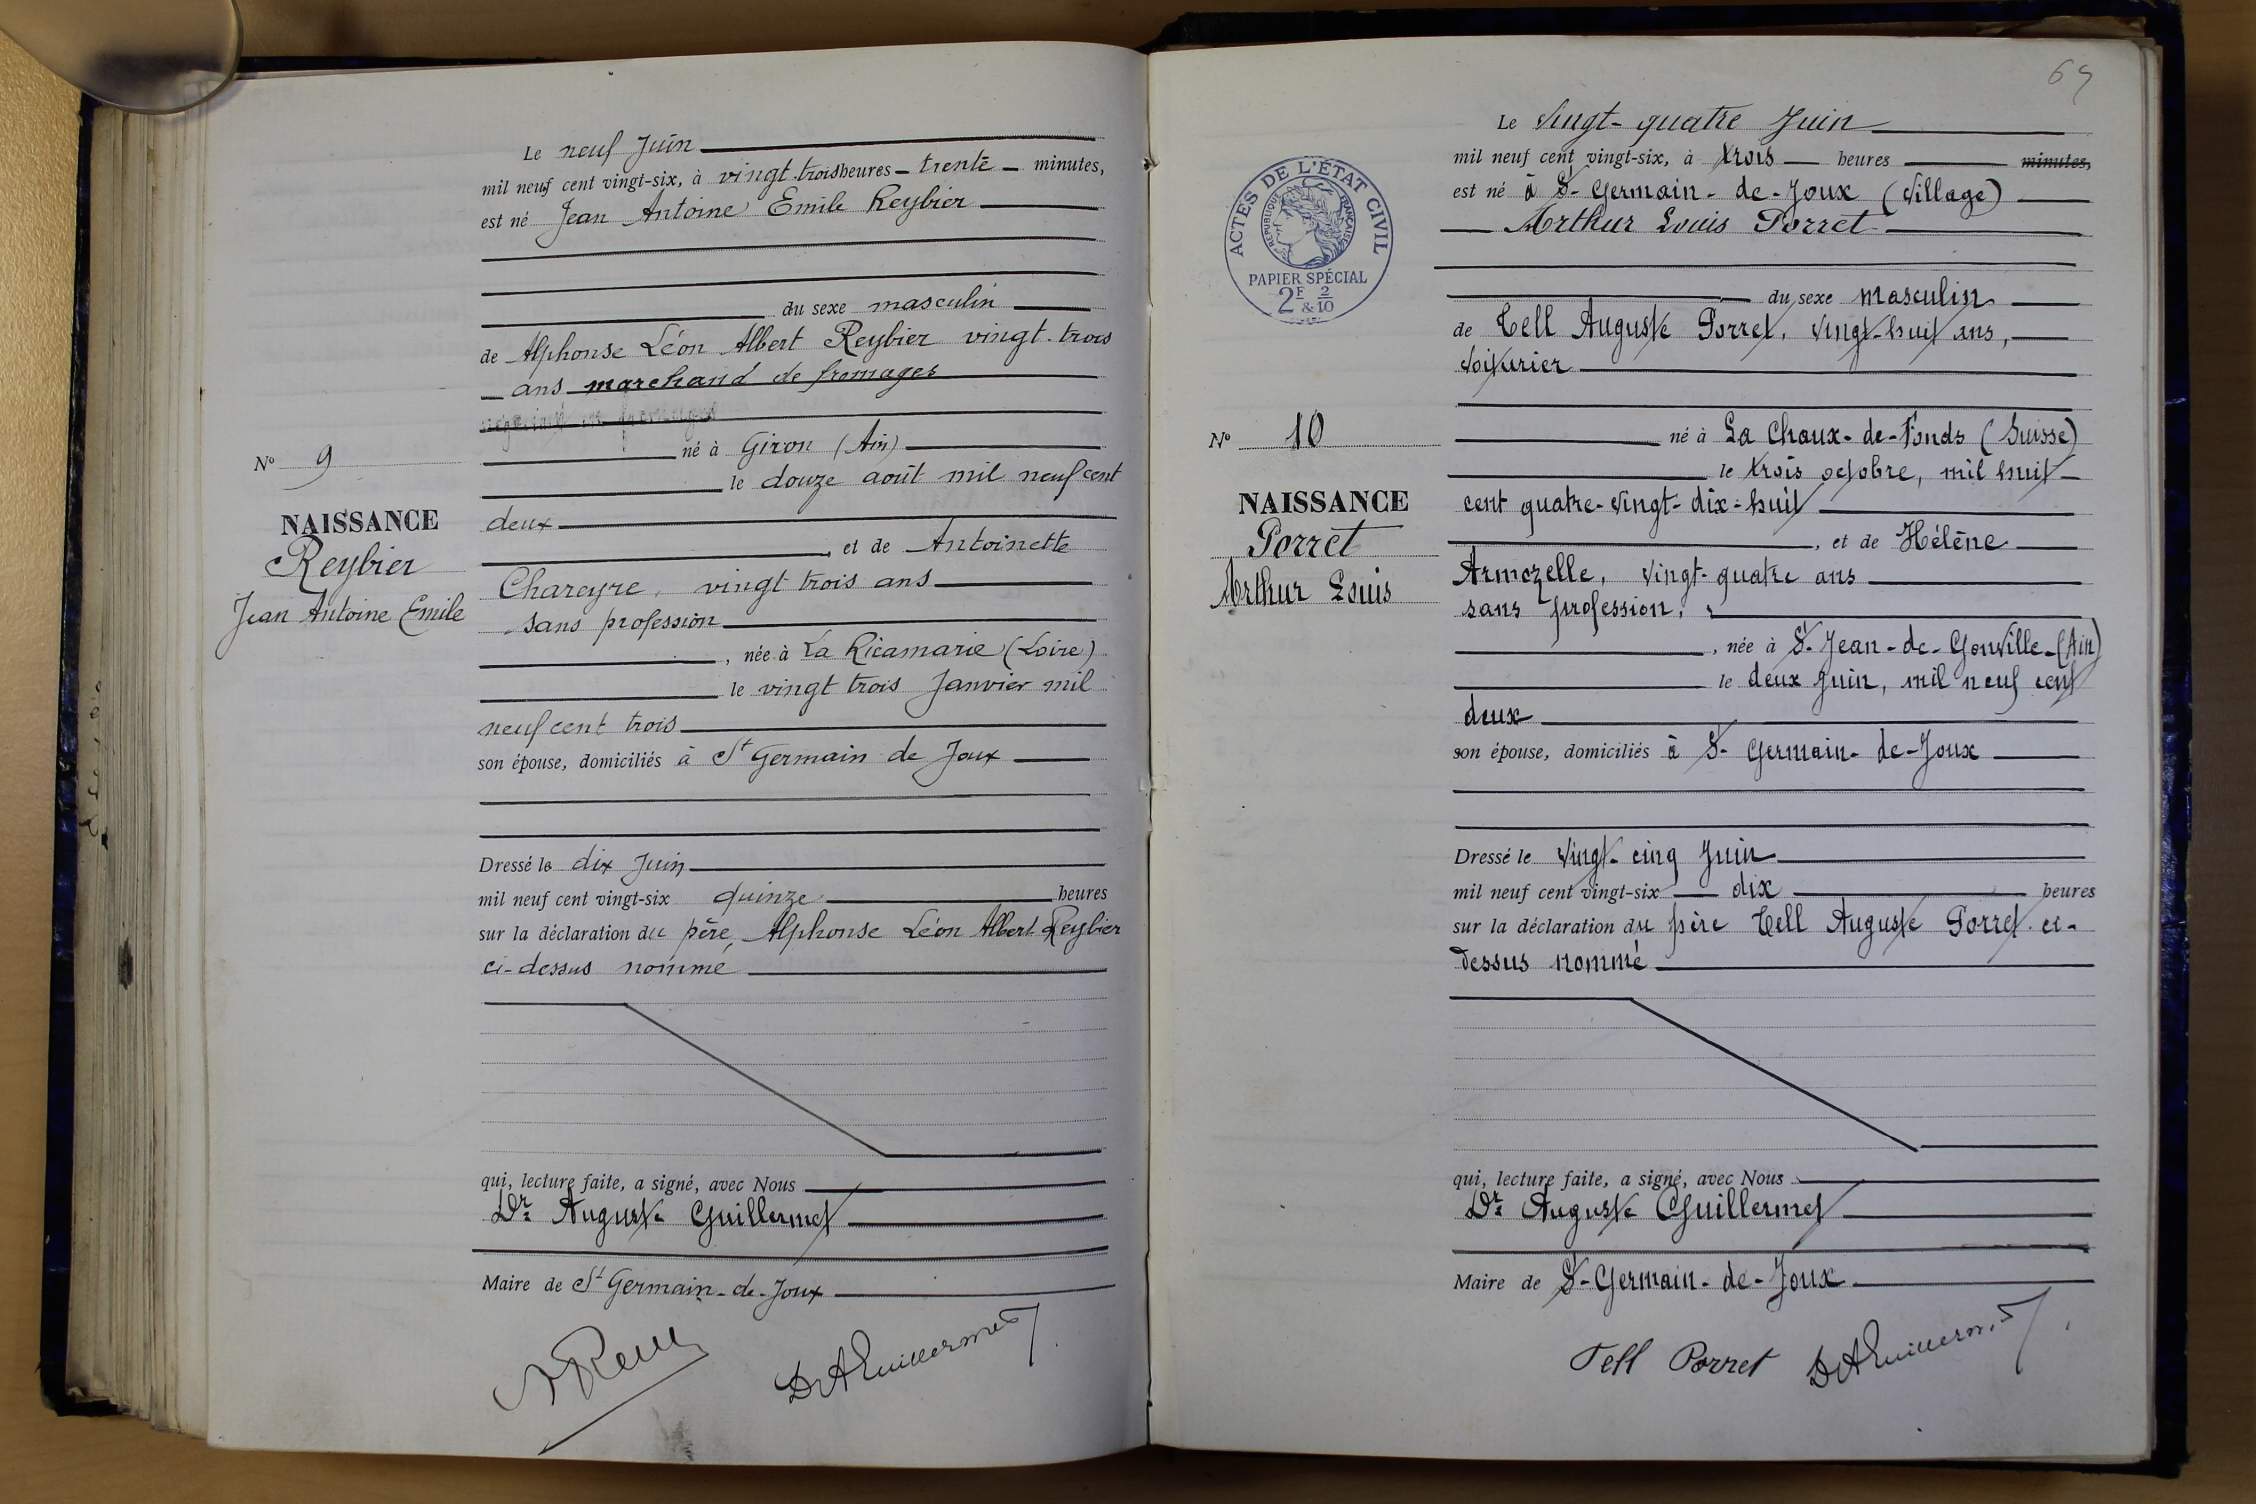 Le neuf Juin
mil neuf cent vingt-six, à vingt-trois heures - trente - minutes,
est né Jean Antoine Emile Reybier
du sexe masculin
de Alphonse Léon Albert Reybier vingt-trois
ans marchand de fromages
né à Giron (Ain)
le douze août mil neuf cent
deux
, et de Antoinette
Chareyre, vingt trois ans
sans profession
, née à La Ricamarie (Loire)
le vingt trois Janvier mil
neuf cent trois
son épouse, domiciliés à St Germain de Joux
Dressé le dix Juin
mil neuf cent vingt-six quinze heures
sur la déclaration du père, Alphonse Léon Albert Reybier
ci-dessus nommé
qui, lecture faite, a signé, avec Nous
Dr Auguste Guillermet
Maire de St Germain-de-Joux
DrAGuillermet
No 9
NAISSANCE
Reybier
Jean Antoine Emile
69
Le Vingt-quatre Juin
mil neuf cent vingt-six, à trois heures minutes,
est né à St-Germain-de-Joux (Village)
Arthur Louis Porret
du sexe masculin
de Tell Auguste Porret, vingt-huit ans,
voiturier
né à La Chaux-de-Fonds (Suisse)
le trois octobre, mil huit-
cent quatre-vingt-dix-huit
, et de Hélène
Armozelle, vingt-quatre ans
sans profession,
, née à St-Jean-de-Gonville-(Ain)
le deux Juin, mil neuf cent
deux
son épouse, domiciliés à St-Germain-de-Joux
Dressé le vingt-cinq Juin
mil neuf cent vingt-six dix heures
sur la déclaration du père Tell Auguste Porret ci-
dessus nommé
qui, lecture faite, a signé, avec Nous
Dr Auguste Guillermet
Maire de St-Germain-de-Joux
Tell Porret DrAGuillermet
ACTES DE L'ÉTAT CIVIL
RÉPUBLIQUE FRANÇAISE
PAPIER SPÉCIAL
2F & 2/10
No 10
NAISSANCE
Porret
Arthur Louis